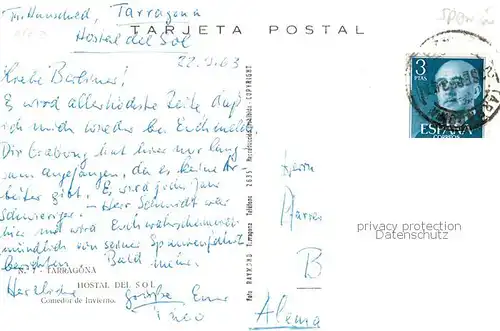 Tarragona
Hostal del Sol
TARJETA POSTAL
22.9.63
3
PTAS
ESPAÑA
CORREOS
Es wird allerhöchste Zeite daß
ich mich wieder bei Euch melde.
Die Grabung hat hier nur lang
sam angefangen, da es keine Ar
beiter gibt. Es wird jedes Jahr
schwieriger. - Herr Schmidt war
hier und wird Euch wahrscheinlich
mündlich von seiner Spanienfahrt
berichten. Bald mehr.
Herzliche Grüße Euer
N.º 7 - TARRAGONA
HOSTAL DEL SOL
Comedor de Invierno.
Foto RAYMOND. Tarragona. Teléfono 2635
COPYRIGHT
Herrn
Pfarrer
B
Alema
privacy protection
Datenschutz